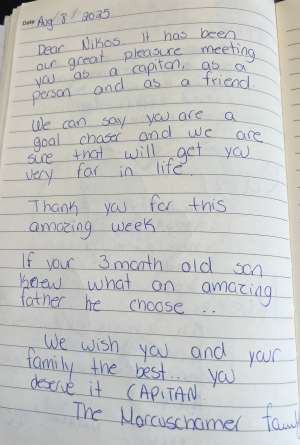 Date Aug / 8 / 2025
Dear Nikos It has been
our great pleasure meeting
you as a capitan, as a
person and as a friend.
We can say you are a
goal chaser and we are
sure that will get you
very far in life.
Thank you for this
amazing week.
If your 3 month old son
knew what an amazing
father he choose ..
We wish you and your
family the best... you
deserve it CAPITAN
The Marcuschamer